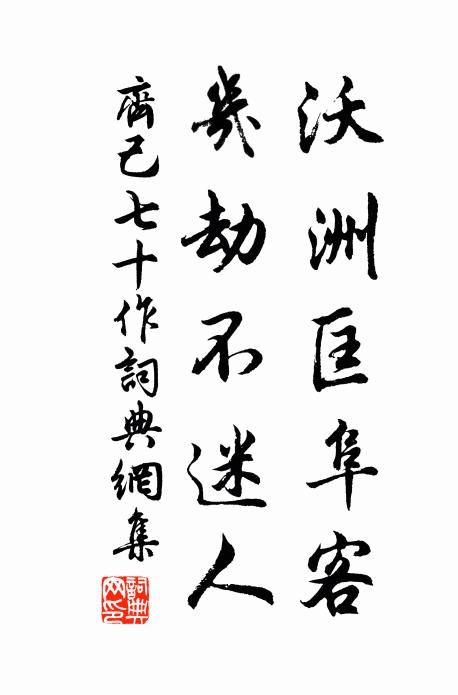 沃洲匡阜客
幾劫不迷人
齊己七十作詞典網集
詞典网印